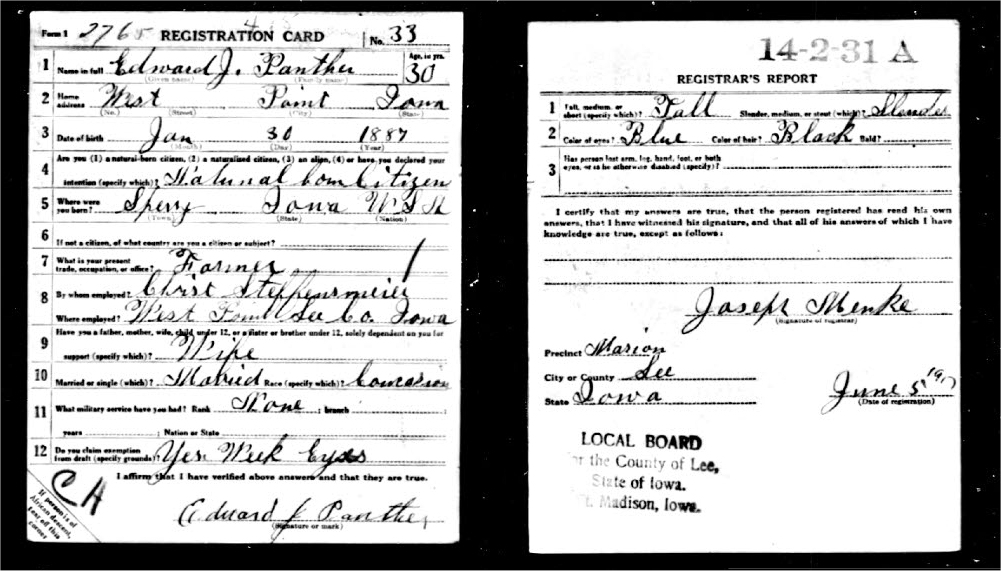 Form 1 2765 REGISTRATION CARD No. 33
1 Name in full Edward J. Panther Age, in yrs. 30
(Given name) (Family name)
2 Home address West Point Iowa
(No.) (Street) (City) (State)
3 Date of birth Jan 30 1887
(Month) (Day) (Year)
4 Are you (1) a natural-born citizen, (2) a naturalized citizen, (3) an alien, (4) or have you declared your
intention (specify which)? Natural born Citizen
5 Where were you born? Sperry Iowa U.S.A
(Town) (State) (Nation)
6 If not a citizen, of what country are you a citizen or subject?
7 What is your present trade, occupation, or office? Farmer
8 By whom employed? Christ Steffensmeier
Where employed? West Point Lee Co. Iowa
9 Have you a father, mother, wife, child under 12, or a sister or brother under 12, solely dependent on you for
support (specify which)? Wife
10 Married or single (which)? Married Race (specify which)?
11 What military service have you had? Rank None ; branch
years ; Nation or State
12 Do you claim exemption from draft (specify grounds)? Yes. Week Eyes
I affirm that I have verified above answers and that they are true.
CA
If person is of African descent, tear off this corner
Edward J Panther
(Signature or mark)
14-2-31 A
REGISTRAR'S REPORT
1 Tall, medium, or short (specify which)? Tall Slender, medium, or stout (which)? Slender
2 Color of eyes? Blue Color of hair? Black Bald?
3 Has person lost arm, leg, hand, foot, or both
eyes, or is he otherwise disabled (specify)?
I certify that my answers are true, that the person registered has read his own
answers, that I have witnessed his signature, and that all of his answers of which I have
knowledge are true, except as follows:
Joseph Menke
(Signature of registrar)
Precinct Marion
City or County Lee
State Iowa
June 5 1917
(Date of registration)
LOCAL BOARD
for the County of Lee,
State of Iowa.
Ft. Madison, Iowa.